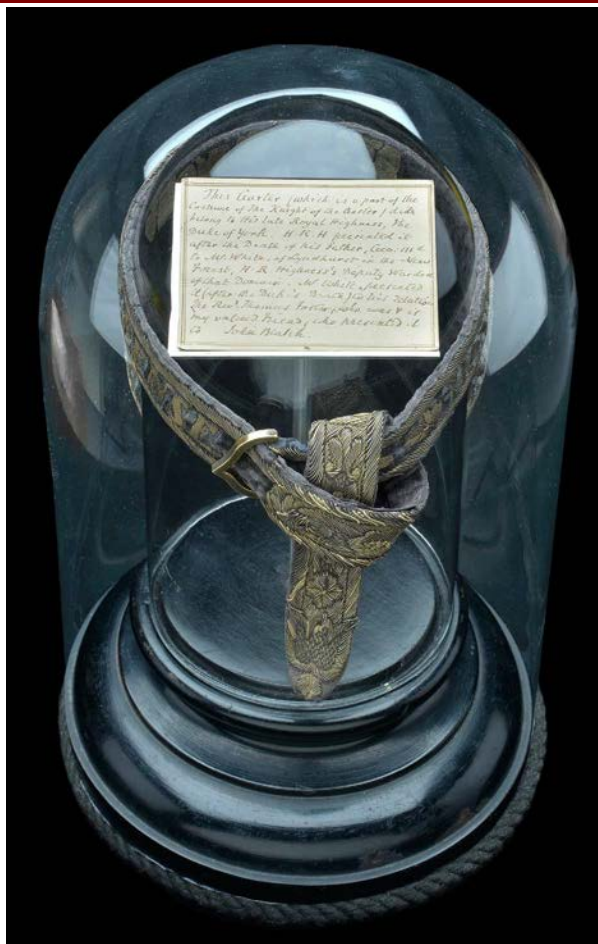 This Garter (which is a part of the
Costume of the Knight of the Garter) did
belong to His late Royal Highness, The
Duke of York. H R H presented it
after the Death of his Father,
to Mr White, of Lyndhurst in the New
Forest, H. R. Highness's Deputy Warden
of that Domain. Mr White presented
it (after the Duke's Death) to his Relation
the Revd Thomas who was & is
my valued Friend, who presented it
to John